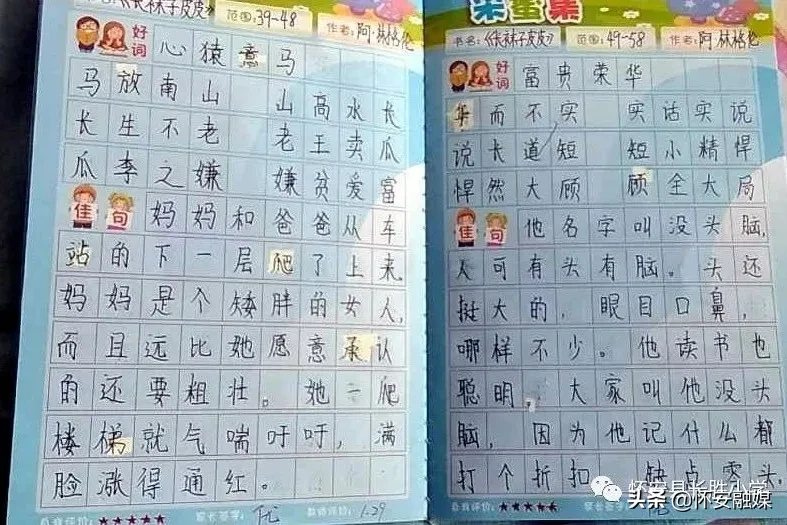 《长袜子皮皮》 范围:39-48 作者:阿·林格伦
好词 心猿意马
马放南山 山高水长
长生不老 老王卖瓜
瓜李之嫌 嫌贫爱富
佳句 妈妈和爸爸从车
站的下一层爬了上来。
妈妈是个矮胖的女人,
而且远比她愿意承认
的还要粗壮。她一爬
楼梯就气喘吁吁,满
脸涨得通红。
自我评价:★★★★★ 家长签字: 优 教师评价: 1.29
采蜜集
书名:《长袜子皮皮》 范围:49-58 作者:阿·林格伦
好词 富贵荣华
华而不实 实话实说
说长道短 短小精悍
悍然大顾 顾全大局
佳句 他名字叫没头脑,
可有头有脑。头还
挺大的,眼目口鼻,
哪样不少。他读书也
聪明。大家叫他没头
脑,因为他记什么都
打个折扣 缺点零头,
自我评价:★★★★★
怀安县长胜小学
头条@怀安融媒